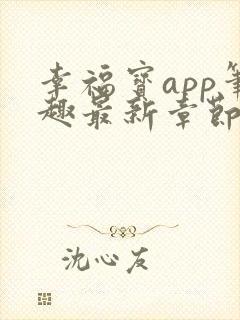 幸福宝app笔
趣最新章节
沈心友